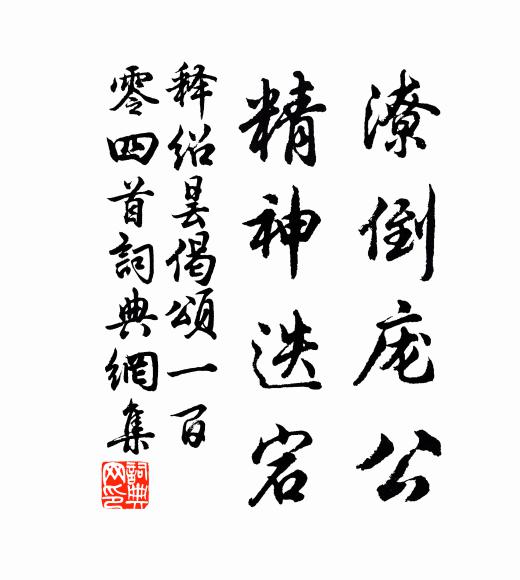 潦倒庞公
精神迭宕
释绍昙偈颂一百
零四首詞典網集
詞典网印